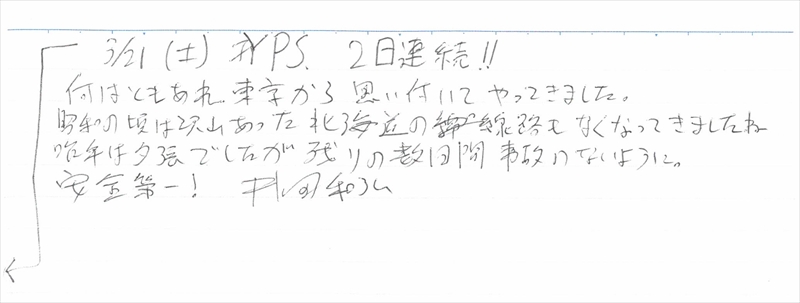 3/21 (土) PS. 2日連続!!
何はともあれ、東京から思い付いてやってきました。
昭和の頃は沢山あった北海道の線路もなくなってきましたね
昨年は夕張でしたが残りの数日間事故のないように。
安全第一!